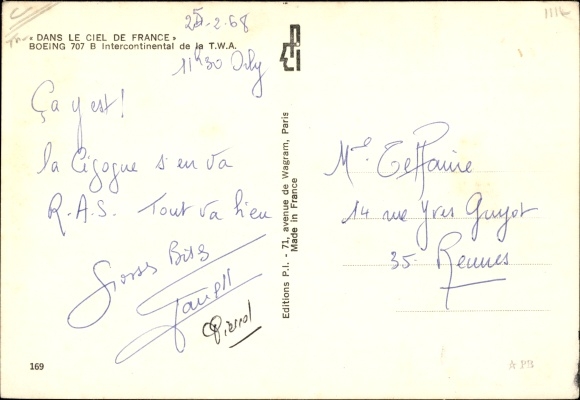 « DANS LE CIEL DE FRANCE »
BOEING 707 B Intercontinental de la T.W.A.
25-2-68
11h30 Orly
Ça y est !
la Cigogne s'en va
R.A.S. Tout va bien
Grosses Bises
Pierrot
169
Editions P.I. - 71, avenue de Wagram, Paris
Made in France
14 rue Yves Guyot
35 Rennes